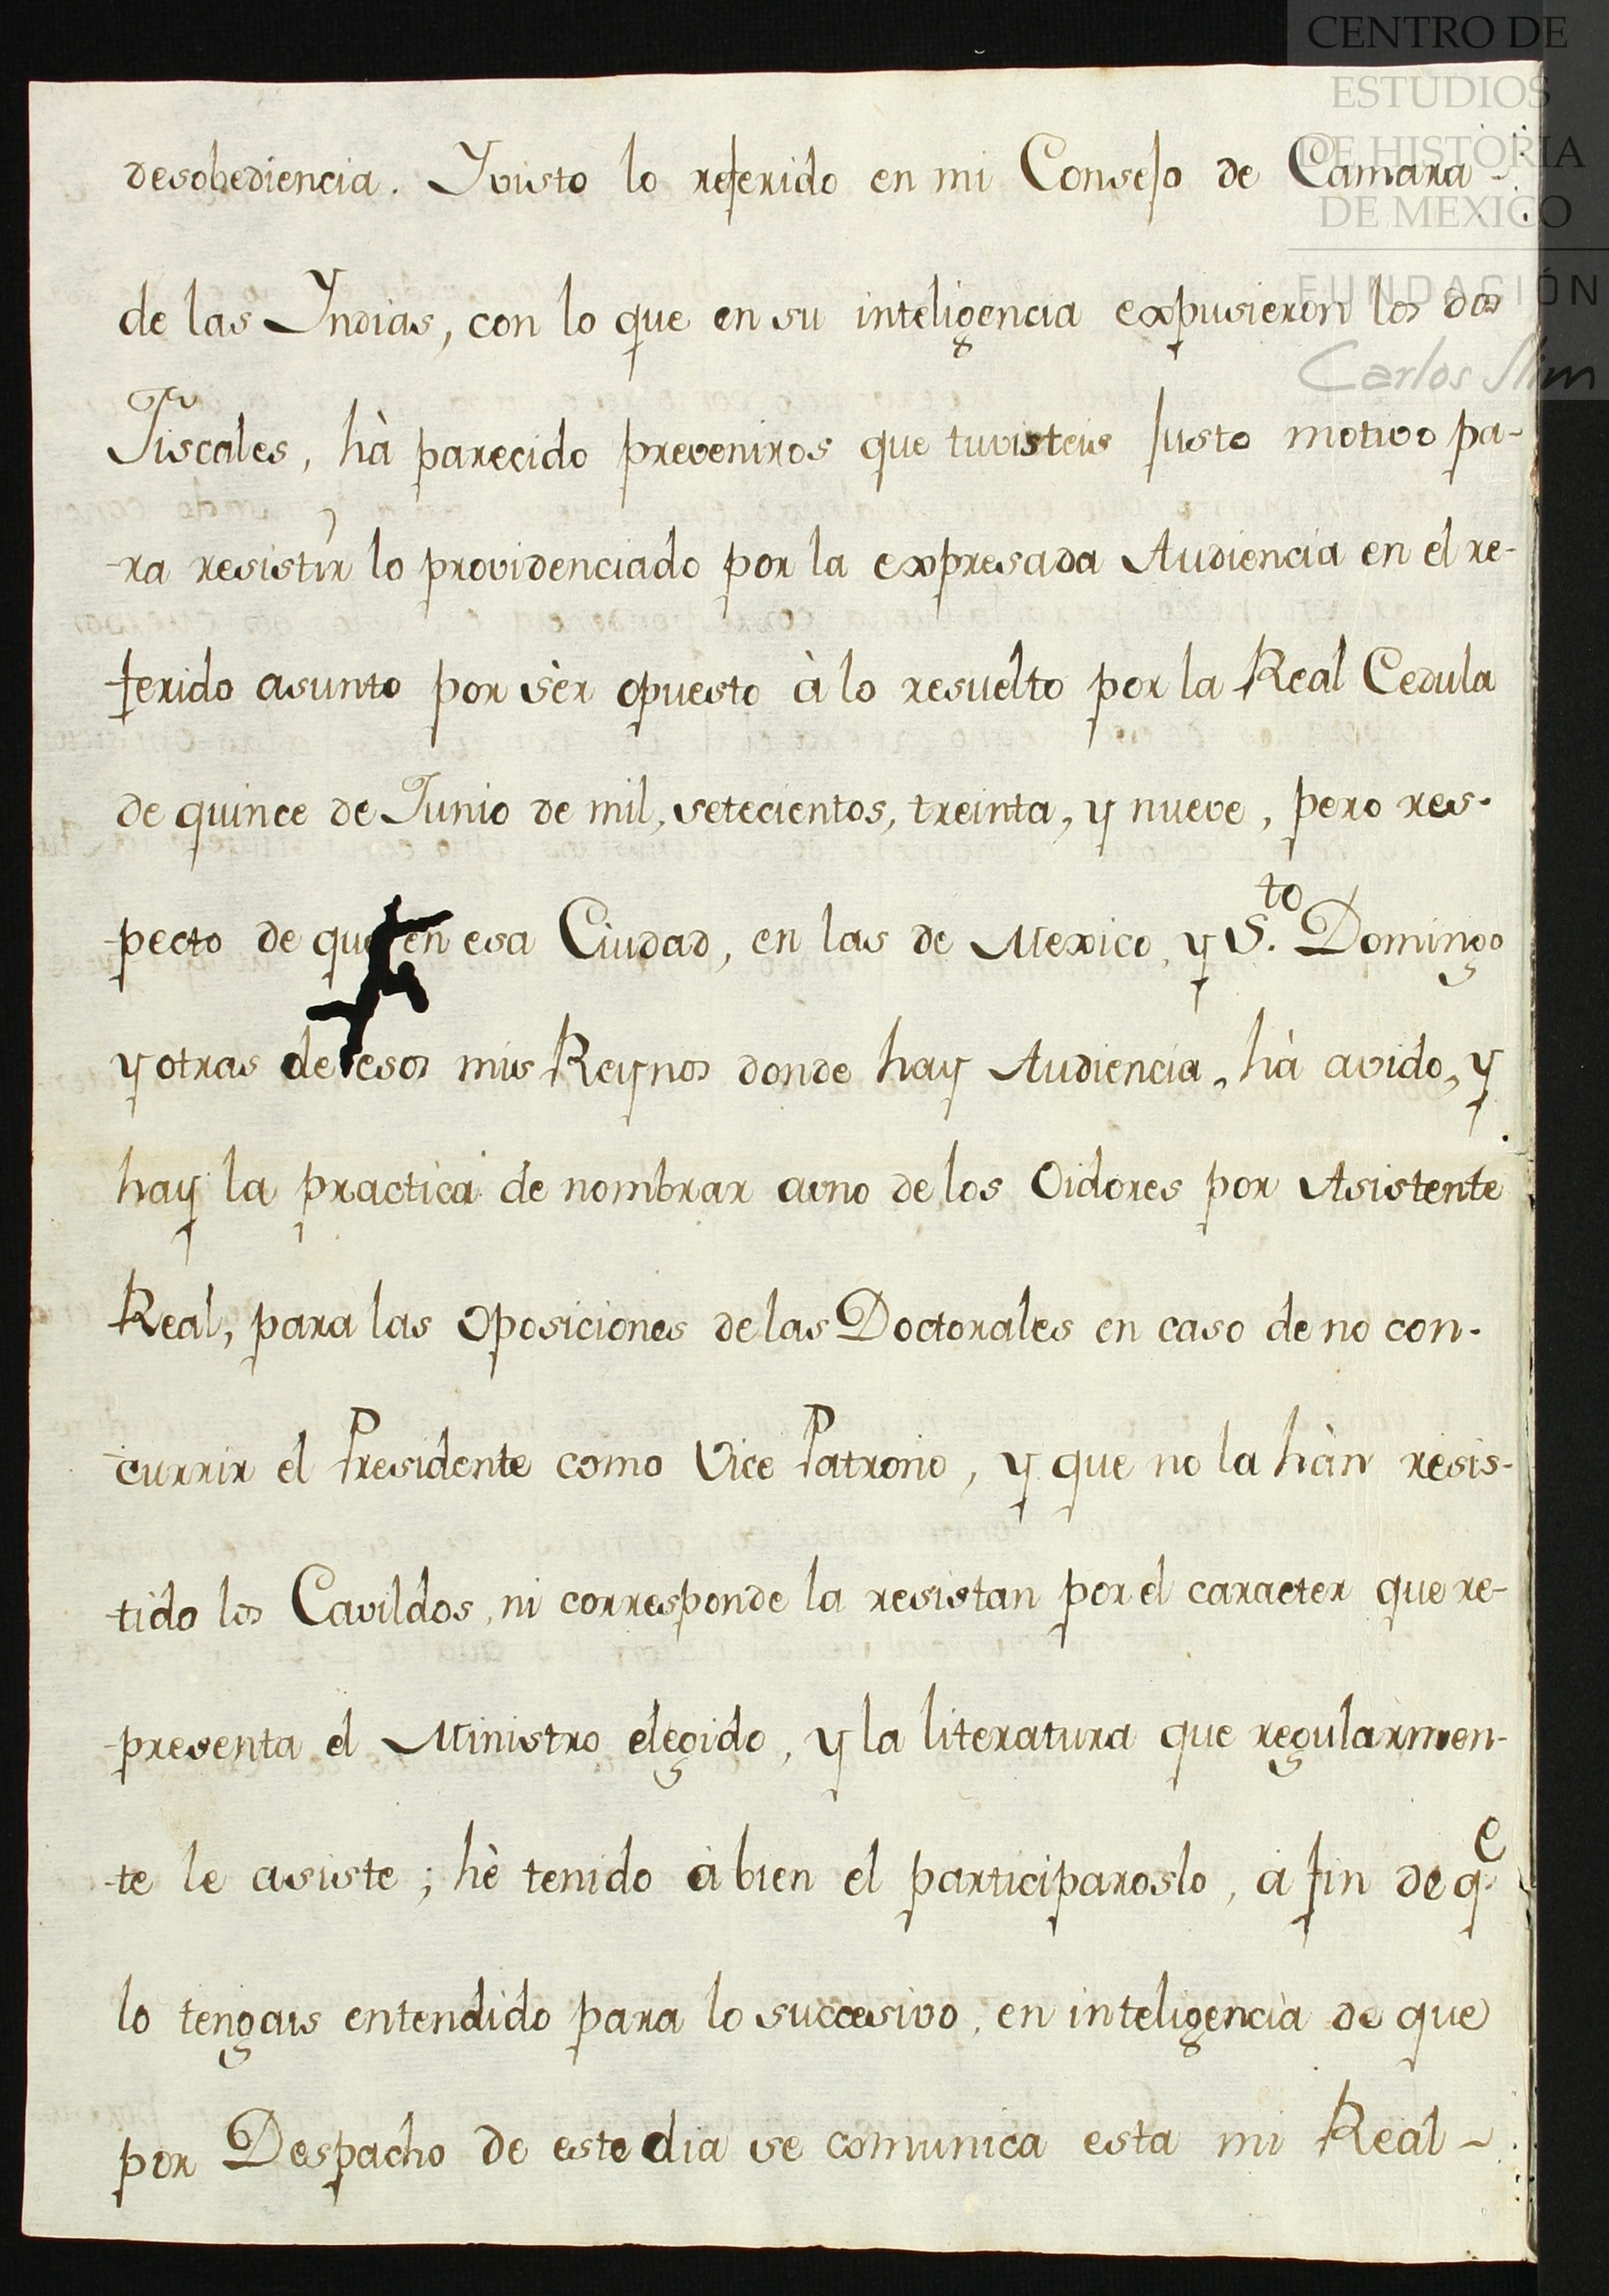 CENTRO DE
ESTUDIOS
DE HISTORIA
DE MEXICO
FUNDACIÓN
Carlos Slim
desobediencia. Yvisto lo referido en mi Consejo de Camara
de las Yndias, con lo que en su inteligencia expusieron los dos
Fiscales, hà parecido preveniros que tuvisteis justo motivo pa-
ra resistir lo providenciado por la expresada Audiencia en el re-
ferido asunto por sèr opuesto à lo resuelto por la Real Cedula
de quince de Junio de mil, setecientos, treinta, y nueve, pero res-
pecto de que en esa Ciudad, en las de Mexico, y S.to Domingo
y otras de esos mis Reynos donde hay Audiencia, hà avido, y
hay la practica de nombrar avno de los Oidores por Asistente
Real, para las Oposiciones de las Doctorales en caso de no con-
currir el Presidente como Vice Patrono, y que no la hàn resis-
tido los Cavildos, ni corresponde la resistan por el caracter que re-
presenta el Ministro elegido, y la literatura que regularmen-
te le asiste; hè tenido à bien el participaroslo, à fin de q.e
lo tengais entendido para lo succesivo, en inteligencia de que
por Despacho de este dia se comunica esta mi Real